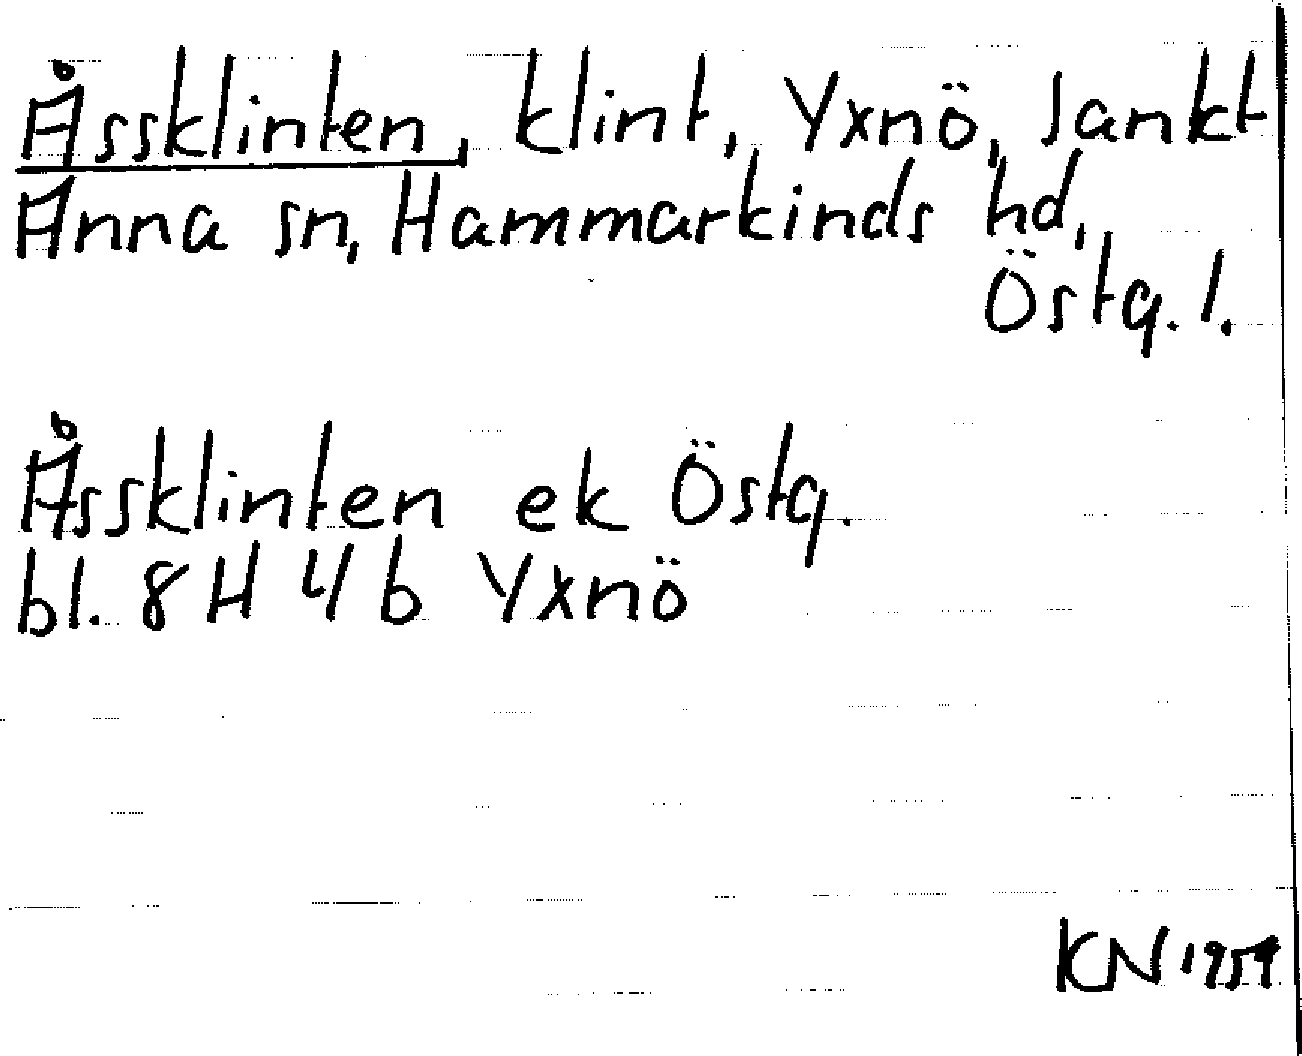 Åssklinten, klint, Yxnö, Sankt
Anna sn, Hammarkinds hd,
Östg. l.
Åssklinten ek Östg.
bl. 8 H 4 b Yxnö
KN 1959